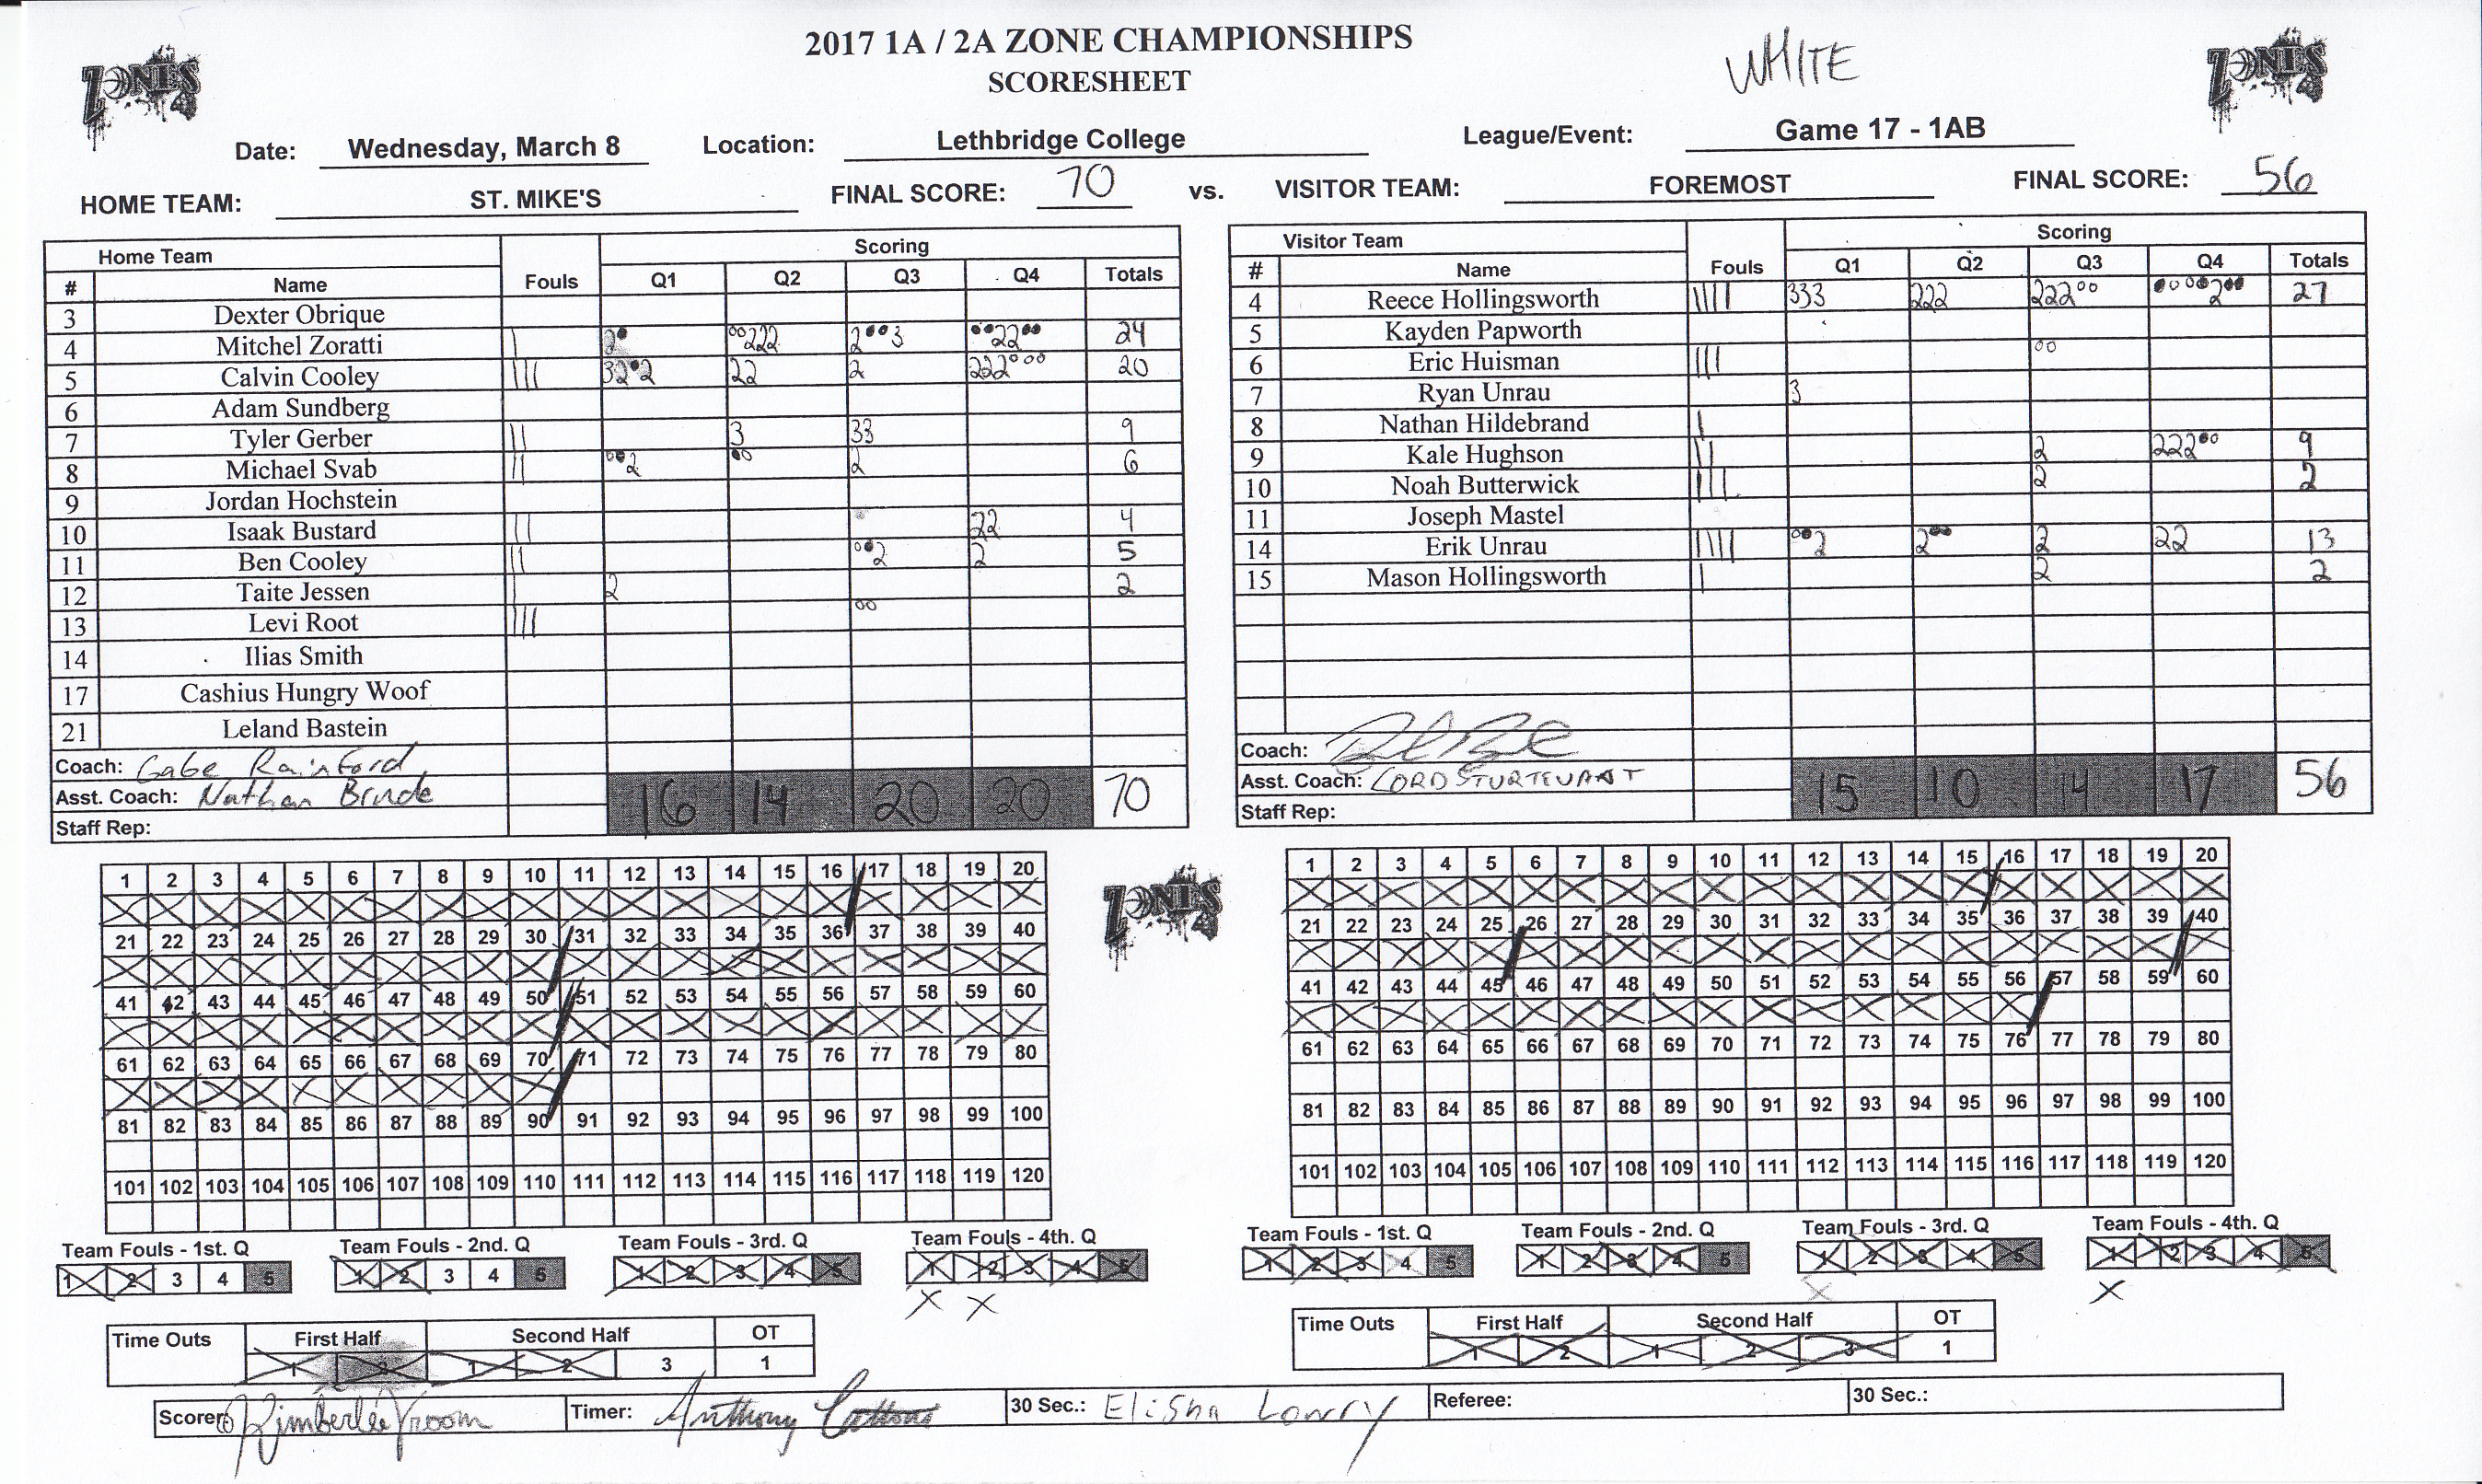 2017 1A / 2A ZONE CHAMPIONSHIPS
SCORESHEET
WHITE
ZONES
ZONES
Date: Wednesday, March 8 Location: Lethbridge College League/Event: Game 17 - 1AB
HOME TEAM: ST. MIKE'S FINAL SCORE: 70 vs. VISITOR TEAM: FOREMOST FINAL SCORE: 56
Home Team Fouls Scoring
# Name Q1 Q2 Q3 Q4 Totals
3 Dexter Obrique
4 Mitchel Zoratti 24
5 Calvin Cooley 20
6 Adam Sundberg
7 Tyler Gerber 3 33 9
8 Michael Svab 2 2 6
9 Jordan Hochstein
10 Isaak Bustard 22 4
11 Ben Cooley 2 2 5
12 Taite Jessen 2 2
13 Levi Root
14 Ilias Smith
17 Cashius Hungry Woof
21 Leland Bastein
Coach: Gabe Rainford
Asst. Coach: Nathan
16 14 20 20 70
Staff Rep:
Visitor Team Fouls Scoring
# Name Q1 Q2 Q3 Q4 Totals
4 Reece Hollingsworth 333 222 222 2 27
5 Kayden Papworth
6 Eric Huisman
7 Ryan Unrau 3
8 Nathan Hildebrand
9 Kale Hughson 2 222 9
10 Noah Butterwick 2 2
11 Joseph Mastel
14 Erik Unrau 2 2 2 22 13
15 Mason Hollingsworth 2 2
Coach:
Asst. Coach: CORD STURTEVANT
15 10 14 17 56
Staff Rep:
1 2 3 4 5 6 7 8 9 10 11 12 13 14 15 16 17 18 19 20
21 22 23 24 25 26 27 28 29 30 31 32 33 34 35 36 37 38 39 40
41 42 43 44 45 46 47 48 49 50 51 52 53 54 55 56 57 58 59 60
61 62 63 64 65 66 67 68 69 70 71 72 73 74 75 76 77 78 79 80
81 82 83 84 85 86 87 88 89 90 91 92 93 94 95 96 97 98 99 100
101 102 103 104 105 106 107 108 109 110 111 112 113 114 115 116 117 118 119 120
ZONES
1 2 3 4 5 6 7 8 9 10 11 12 13 14 15 16 17 18 19 20
21 22 23 24 25 26 27 28 29 30 31 32 33 34 35 36 37 38 39 40
41 42 43 44 45 46 47 48 49 50 51 52 53 54 55 56 57 58 59 60
61 62 63 64 65 66 67 68 69 70 71 72 73 74 75 76 77 78 79 80
81 82 83 84 85 86 87 88 89 90 91 92 93 94 95 96 97 98 99 100
101 102 103 104 105 106 107 108 109 110 111 112 113 114 115 116 117 118 119 120
Team Fouls - 1st. Q Team Fouls - 2nd. Q Team Fouls - 3rd. Q Team Fouls - 4th. Q
1 2 3 4 5 1 2 3 4 5 1 2 3 4 5 1 2 3 4 5
X X
Team Fouls - 1st. Q Team Fouls - 2nd. Q Team Fouls - 3rd. Q Team Fouls - 4th. Q
1 2 3 4 5 1 2 3 4 5 1 2 3 4 5 1 2 3 4 5
X X
Time Outs First Half Second Half OT
1 2 1 2 3 1
Time Outs First Half Second Half OT
1 2 1 2 3 1
Scorer: Kimberlee Vroom Timer: Anthony 30 Sec.: Elisha Lowry Referee: 30 Sec.: